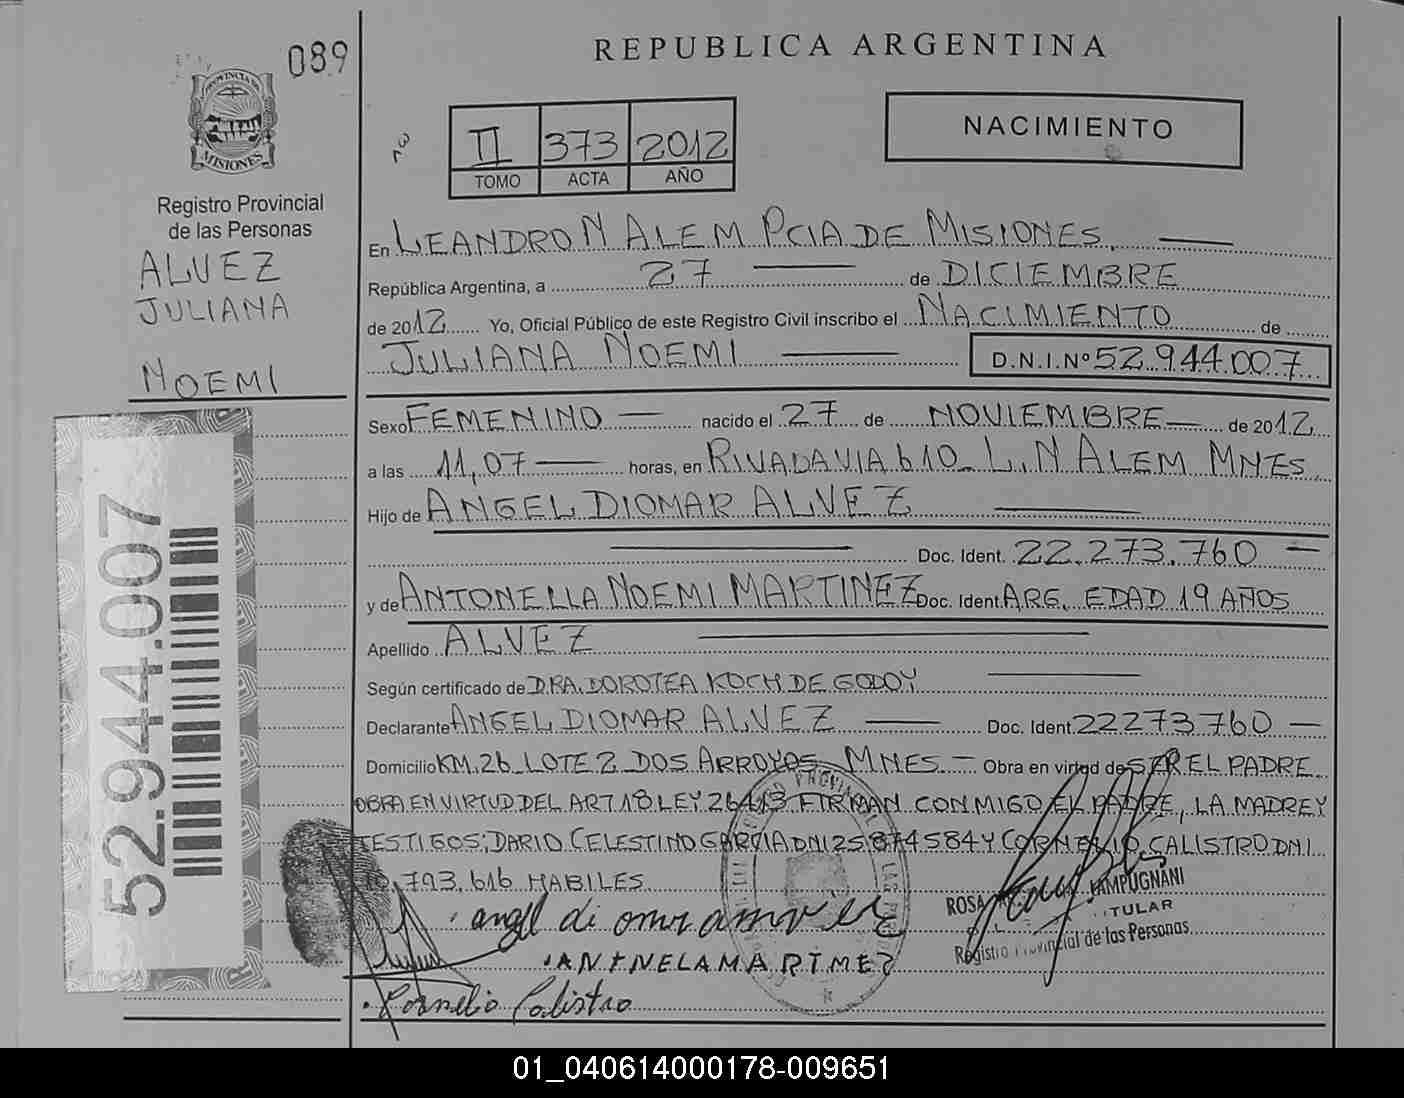 089
REPUBLICA ARGENTINA
PROVINCIA DE
MISIONES
Registro Provincial
de las Personas
ALVEZ
JULIANA
NOEMI
II 373 2012
TOMO ACTA AÑO
NACIMIENTO
En LEANDRO N ALEM PCIA DE MISIONES
República Argentina, a 27 de DICIEMBRE
de 2012 Yo, Oficial Público de este Registro Civil inscribo el NACIMIENTO de
JULIANA NOEMI D.N.I. Nº 52.944.007
Sexo FEMENINO nacido el 27 de NOVIEMBRE de 2012
a las 11,07 horas, en RIVADAVIA 610 L.N ALEM MNES
Hijo de ANGEL DIOMAR ALVEZ
Doc. Ident. 22.273.760
y de ANTONELLA NOEMI MARTINEZ Doc. Ident. ARG. EDAD 19 AÑOS
Apellido ALVEZ
Según certificado de DRA. DOROTEA KOCH DE GODOY
Declarante ANGEL DIOMAR ALVEZ Doc. Ident. 22273760
Domicilio KM.26 LOTE 2 DOS ARROYOS MNES Obra en virtud de SER EL PADRE
OBRA EN VIRTUD DEL ART 18 LEY 26413 FIRMAN CONMIGO EL PADRE, LA MADRE Y
TESTIGOS; DARIO CELESTINO GARCIA DNI 25874584 Y CORNELIO CALISTRO DNI
.793.616 HABILES
52.944.007
ROSA LAMPUGNANI
TITULAR
Registro Provincial de las Personas
Cornelio Calistro
01_040614000178-009651